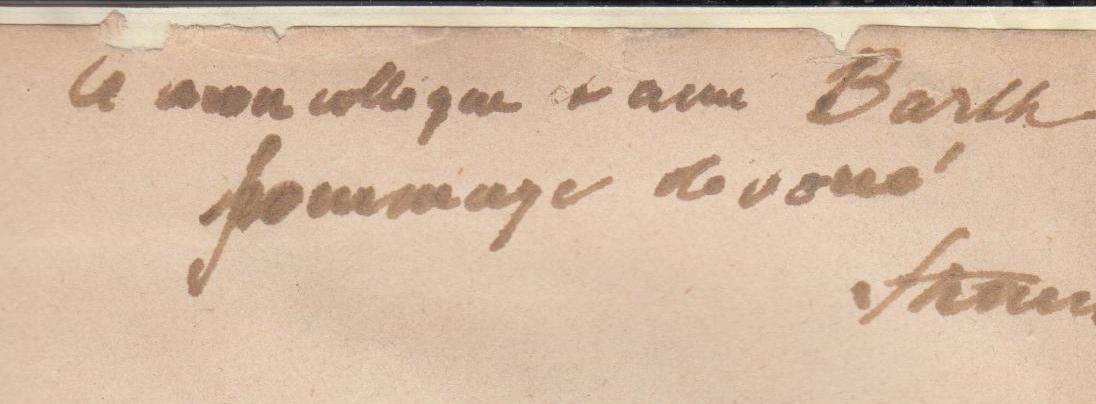 à mon collègue & ami Barth
hommage dévoué